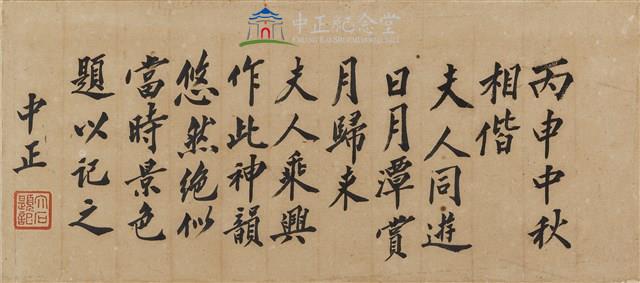 中正紀念堂
CHIANG KAI-SHEK MEMORIAL HALL
丙申中秋
相偕
夫人同遊
日月潭賞
月歸来
夫人乘興
作此神韻
悠然絶似
當時景色
題以記之
中正